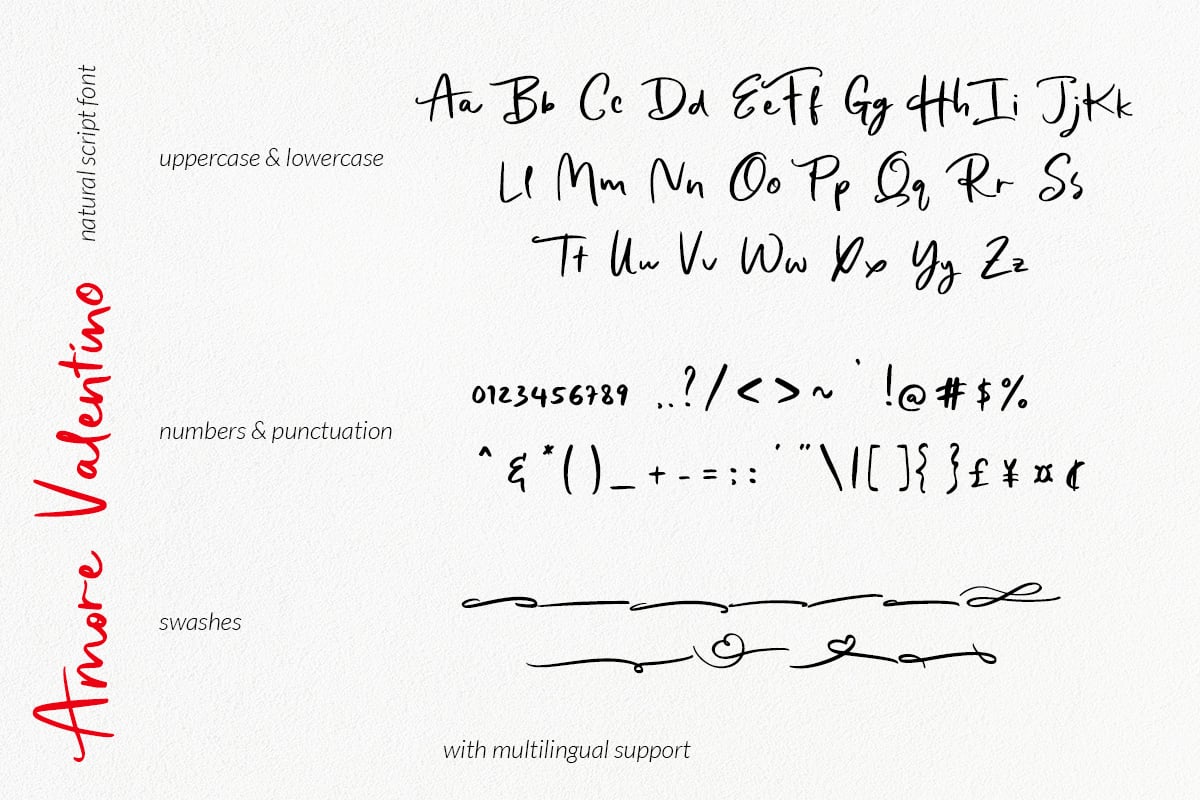 Amore Valentino
natural script font
uppercase & lowercase
Aa Bb Cc Dd Ee Ff Gg Hh Ii Jj Kk
Ll Mm Nn Oo Pp Qq Rr Ss
Tt Uu Vv Ww Xx Yy Zz
numbers & punctuation
0123456789 ..?/<>~ ' !@#$%
^&*()_+-=:: ' " \|[]{}£¥¤¢
swashes
with multilingual support